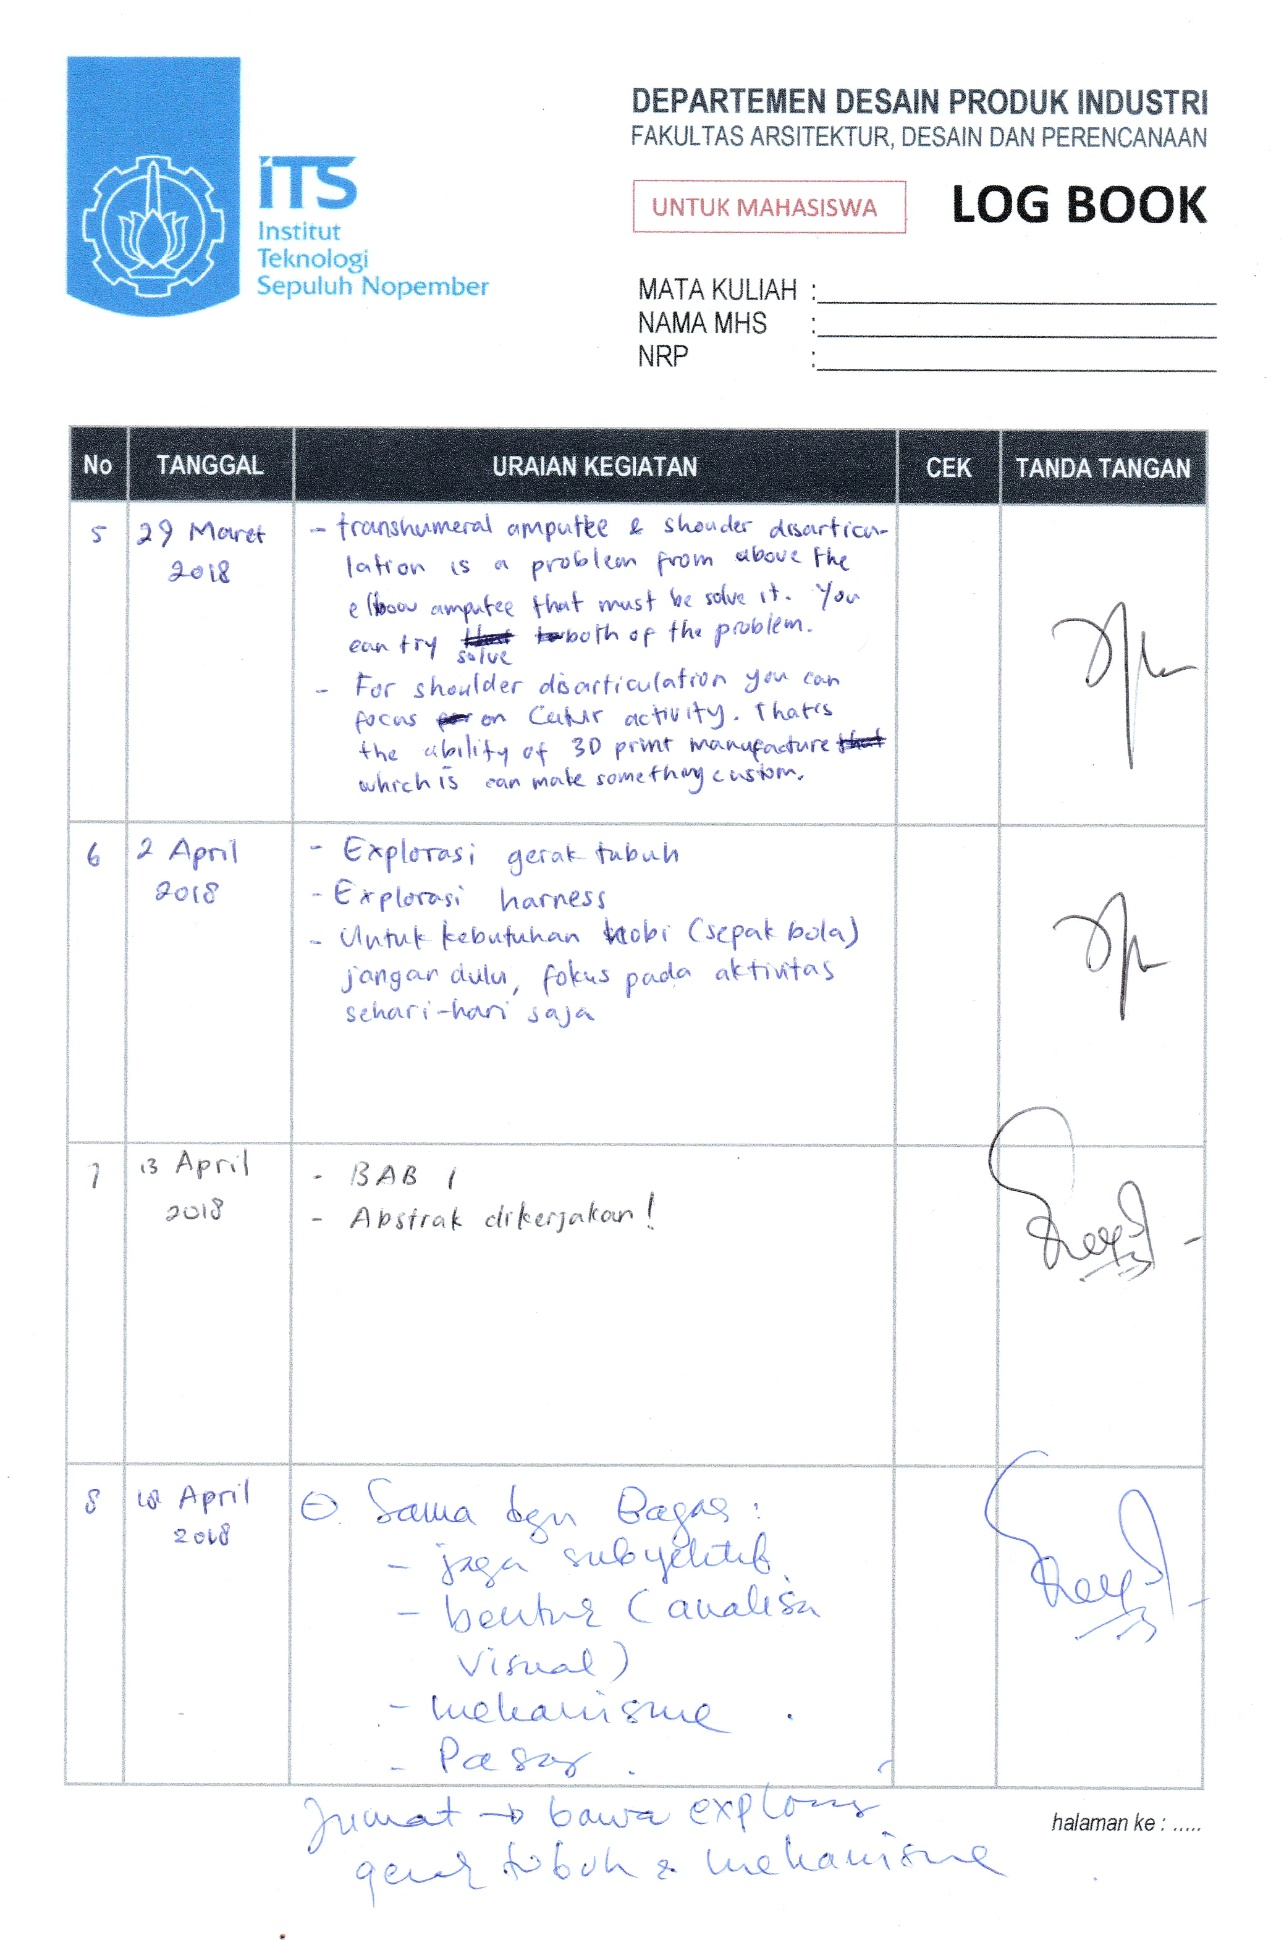 DEPARTEMEN DESAIN PRODUK INDUSTRI
FAKULTAS ARSITEKTUR, DESAIN DAN PERENCANAAN
UNTUK MAHASISWA
LOG BOOK
ITS
Institut
Teknologi
Sepuluh Nopember
MATA KULIAH :
NAMA MHS :
NRP :
No TANGGAL URAIAN KEGIATAN CEK TANDA TANGAN
5 29 Maret 2018
- transhumeral amputee & shouder disarticu-
lation is a problem from above the
elbow amputee that must be solve it. You
can try solve both of the problem.
- For shoulder disarticulation you can
focus on activity. That's
the ability of 3D print manufacture
which is can make something custom.
6 2 April 2018
- Explorasi gerak tubuh
- Explorasi harness
- Untuk kebutuhan hobi (sepak bola)
jangan dulu, fokus pada aktivitas
sehari-hari saja
7 13 April 2018
- BAB 1
- Abstrak dikerjakan!
8 18 April 2018
Sama dgn Bagas :
- jaga subyektif
- bentuk (analisa
visual)
- mekanisme
- Pasar
Jumat → bawa explorasi
gerak tubuh & mekanisme
halaman ke : .....